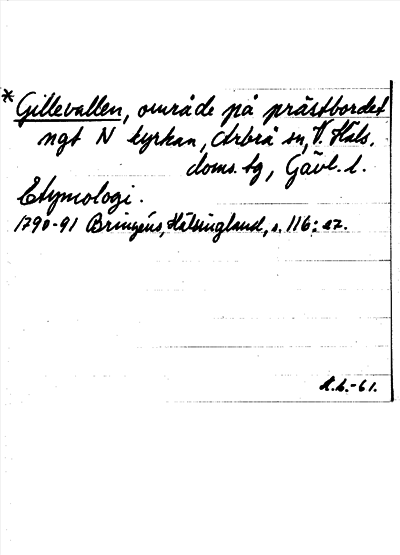 *Gillevallen, område på prästbordet
ngt N kyrkan, Arbrå sn, V. Häls.
doms. tg, Gävl. l.
Etymologi.
1790-91 Bringéus, Hälsingland, s. 116: 27.
-61.